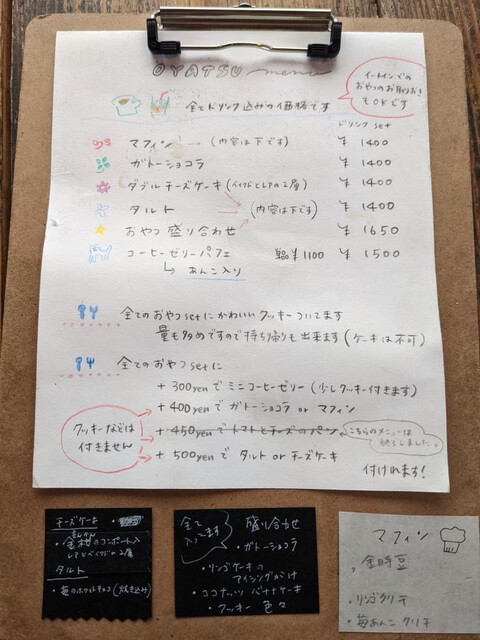 OYATSU menu
イートインでの
おやつのお取りおき
もOKです
全てドリンク込みの価格です
ドリンク set
マフィン → (内容は下です) ¥ 1400
ガトーショコラ ¥ 1400
ダブルチーズケーキ (ベイクドとレアの2層) ¥ 1400
タルト (内容は下です) ¥ 1400
おやつ 盛り合わせ ¥ 1650
コーヒーゼリーパフェ 単品 ¥1100 ¥ 1500
あんこ入り
全てのおやつsetにかわいいクッキーついてます
量も多めですので持ち帰りも出来ます(ケーキは不可)
全てのおやつsetに
+ 300yenでミニコーヒーゼリー (少しクッキー付きます)
+ 400yenで ガトーショコラ or マフィン
+ 450yenで トマトとチーズのパン
こちらのメニューは
終了しました。
+ 500yenで タルト or チーズケーキ
付けれます!
クッキーなどは
付きません
チーズケーキ
・金柑のコンポート入
きんかん
レアとベイクドの2層
タルト
・苺のホワイトチョコ(炊き込み)
全て
入ってます
盛り合わせ
・ガトーショコラ
・リンゴケーキの
アイシングがけ
・ココナッツ バナナケーキ
・クッキー 色々
マフィン
・金時豆
・リンゴクリチ
・苺あんこクリチ